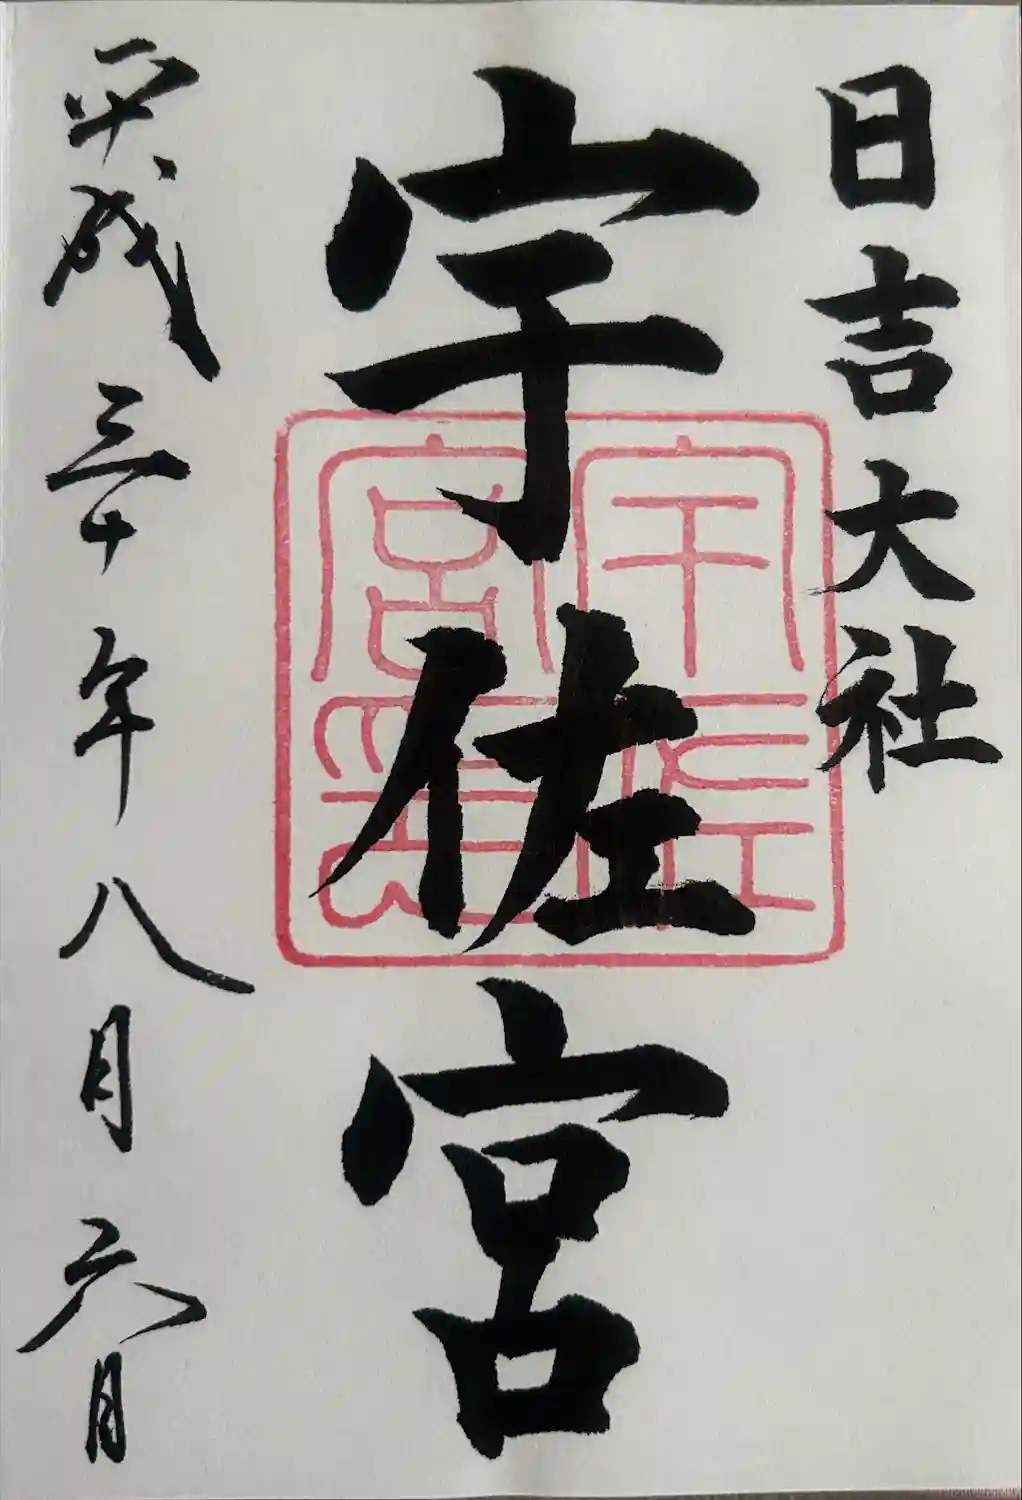 日吉大社
宇佐宮
宇佐宮印
平成三十年八月六日